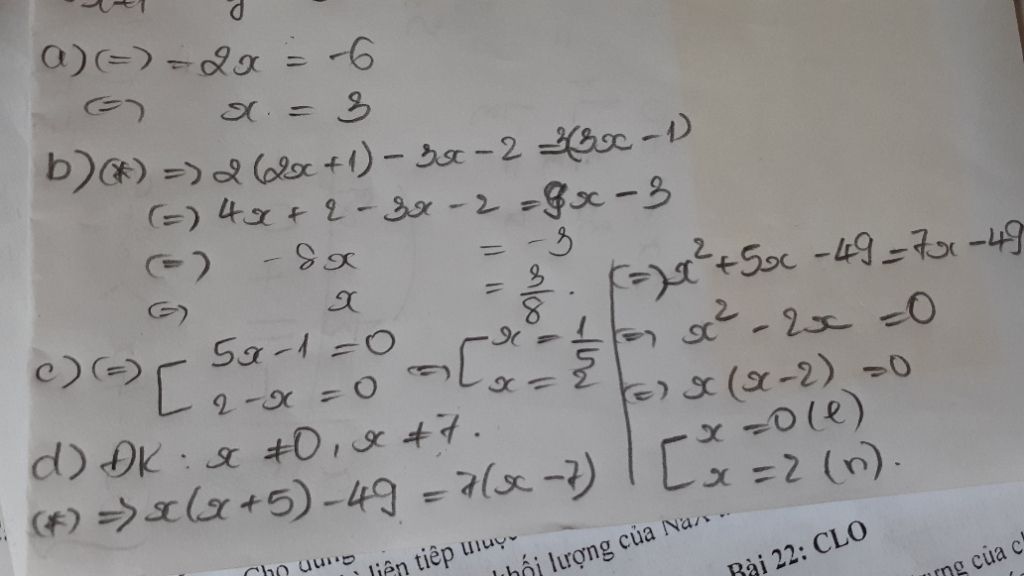 a) (=) -2x = -6
(=) x = 3
b) (*) => 2(2x+1) - 3x - 2 = 3(3x - 1)
(=) 4x + 2 - 3x - 2 = 9x - 3
(=) - 8x = -3
(=) x = 3/8.
c) (=) [ 5x - 1 = 0 (=) [ x = 1/5
2 - x = 0 x = 2
d) ĐK : x ≠ 0, x ≠ 7.
(*) => x(x+5) - 49 = 7(x - 7)
(=) x² + 5x - 49 = 7x - 49
(=) x² - 2x = 0
(=) x(x - 2) = 0
[ x = 0 (l)
x = 2 (n).
liên tiếp
khối lượng của
Bài 22: CLO
của